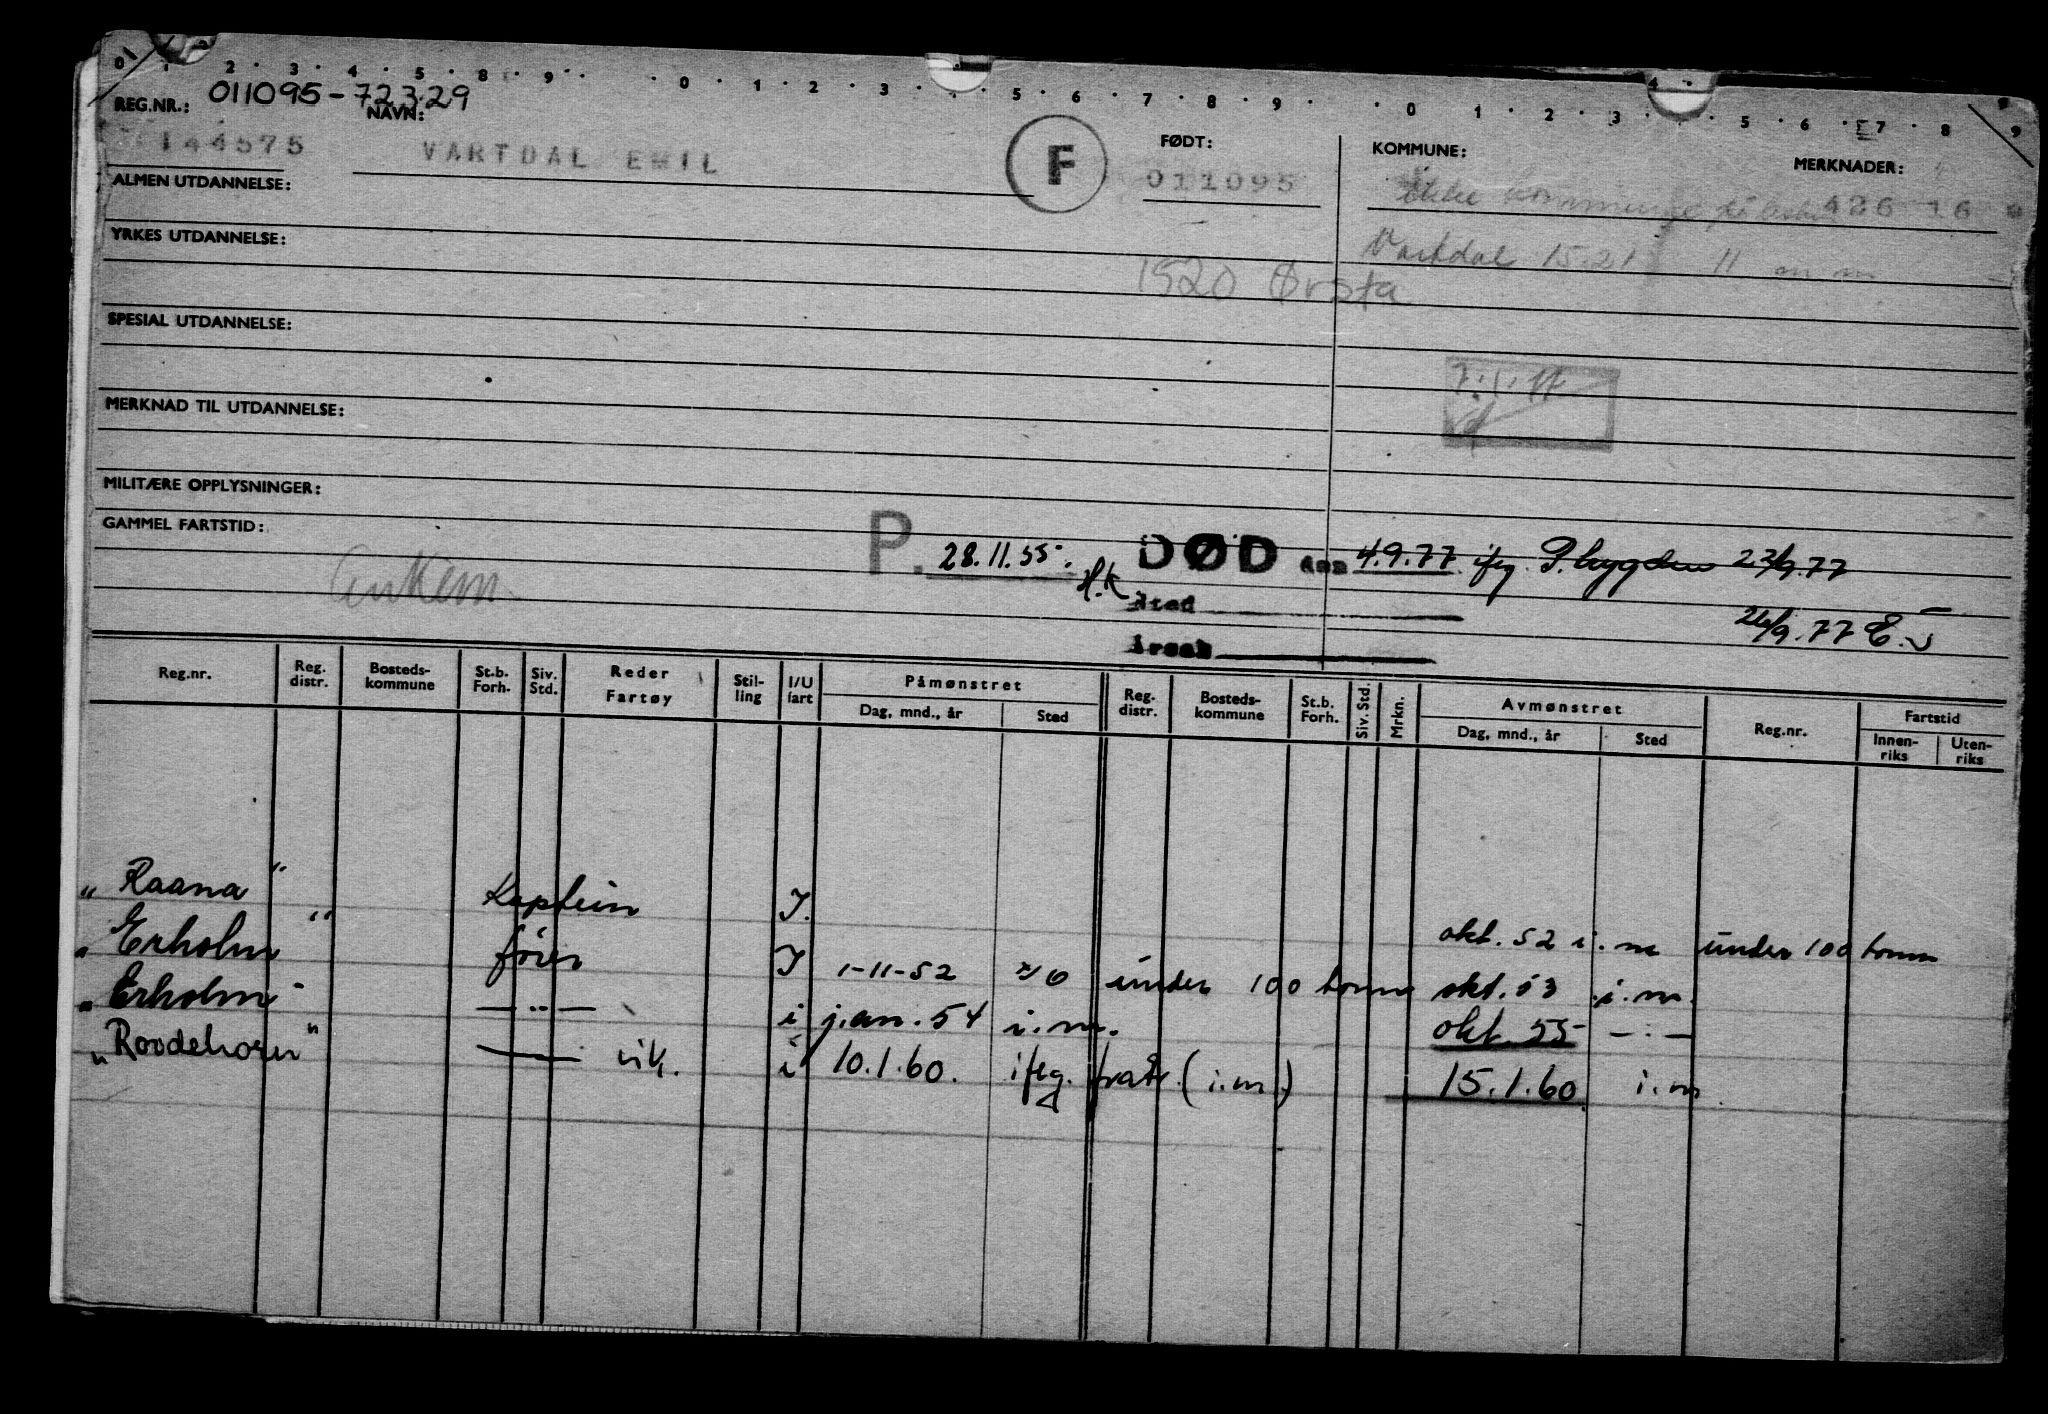 0 1 2 . 3 . 4 . 5 . 8 . 9 . . 0 . 1 . 2 . 3 . . 5 . 6 . 7 . 8 . 9 . . 0 1 . 2 . 3 . 4 . 5 . 6 . 7 . 8 . 9
REG.NR.: 011095-72329 NAVN: FØDT: KOMMUNE: MERKNADER:
144575 VARTDAL EMIL F 011095 ikke kommune 426 16
ALMEN UTDANNELSE:
YRKES UTDANNELSE: Vartdal 15.21 11
1520 Ørsta
SPESIAL UTDANNELSE:
MERKNAD TIL UTDANNELSE:
MILITÆRE OPPLYSNINGER:
GAMMEL FARTSTID: P. 28.11.55. H.K DØD den 4.9.77 ifg. P. bygden 23/9.77
Sted
Årsak 26/9.77 E.
Reg.nr. Reg. distr. Bosteds- kommune St.b. Forh. Siv. Std. Reder Fartøy Stil- ling I/U fart Påmønstret Dag, mnd., år Sted Reg. distr. Bosteds- kommune St.b. Forh. Siv. Std. Mrkn. Avmønstret Dag, mnd., år Sted Reg.nr. Fartstid Innen- riks Uten- riks
„Raana" Kaptein I. okt. 52 i.m under 100 tonn
„Erholm" fører I 1-11-52 under 100 tonn okt. 53 i.m.
„Erholm" —"— i jan. 54 i.m. okt. 55 —:—
„Rovdehorn" —— vik. i 10.1.60. ifeg. (i.m.) 15.1.60 i.m